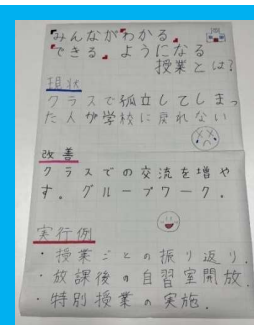 みんながわかる
できる ようになる
授業とは?
現状
クラスで孤立してしまっ
た人が学校に戻れない
改善
クラスでの交流を増や
す。グループワーク。
実行例
・授業ごとの振り返り.
・放課後の自習室開放.
・特別授業の実施.